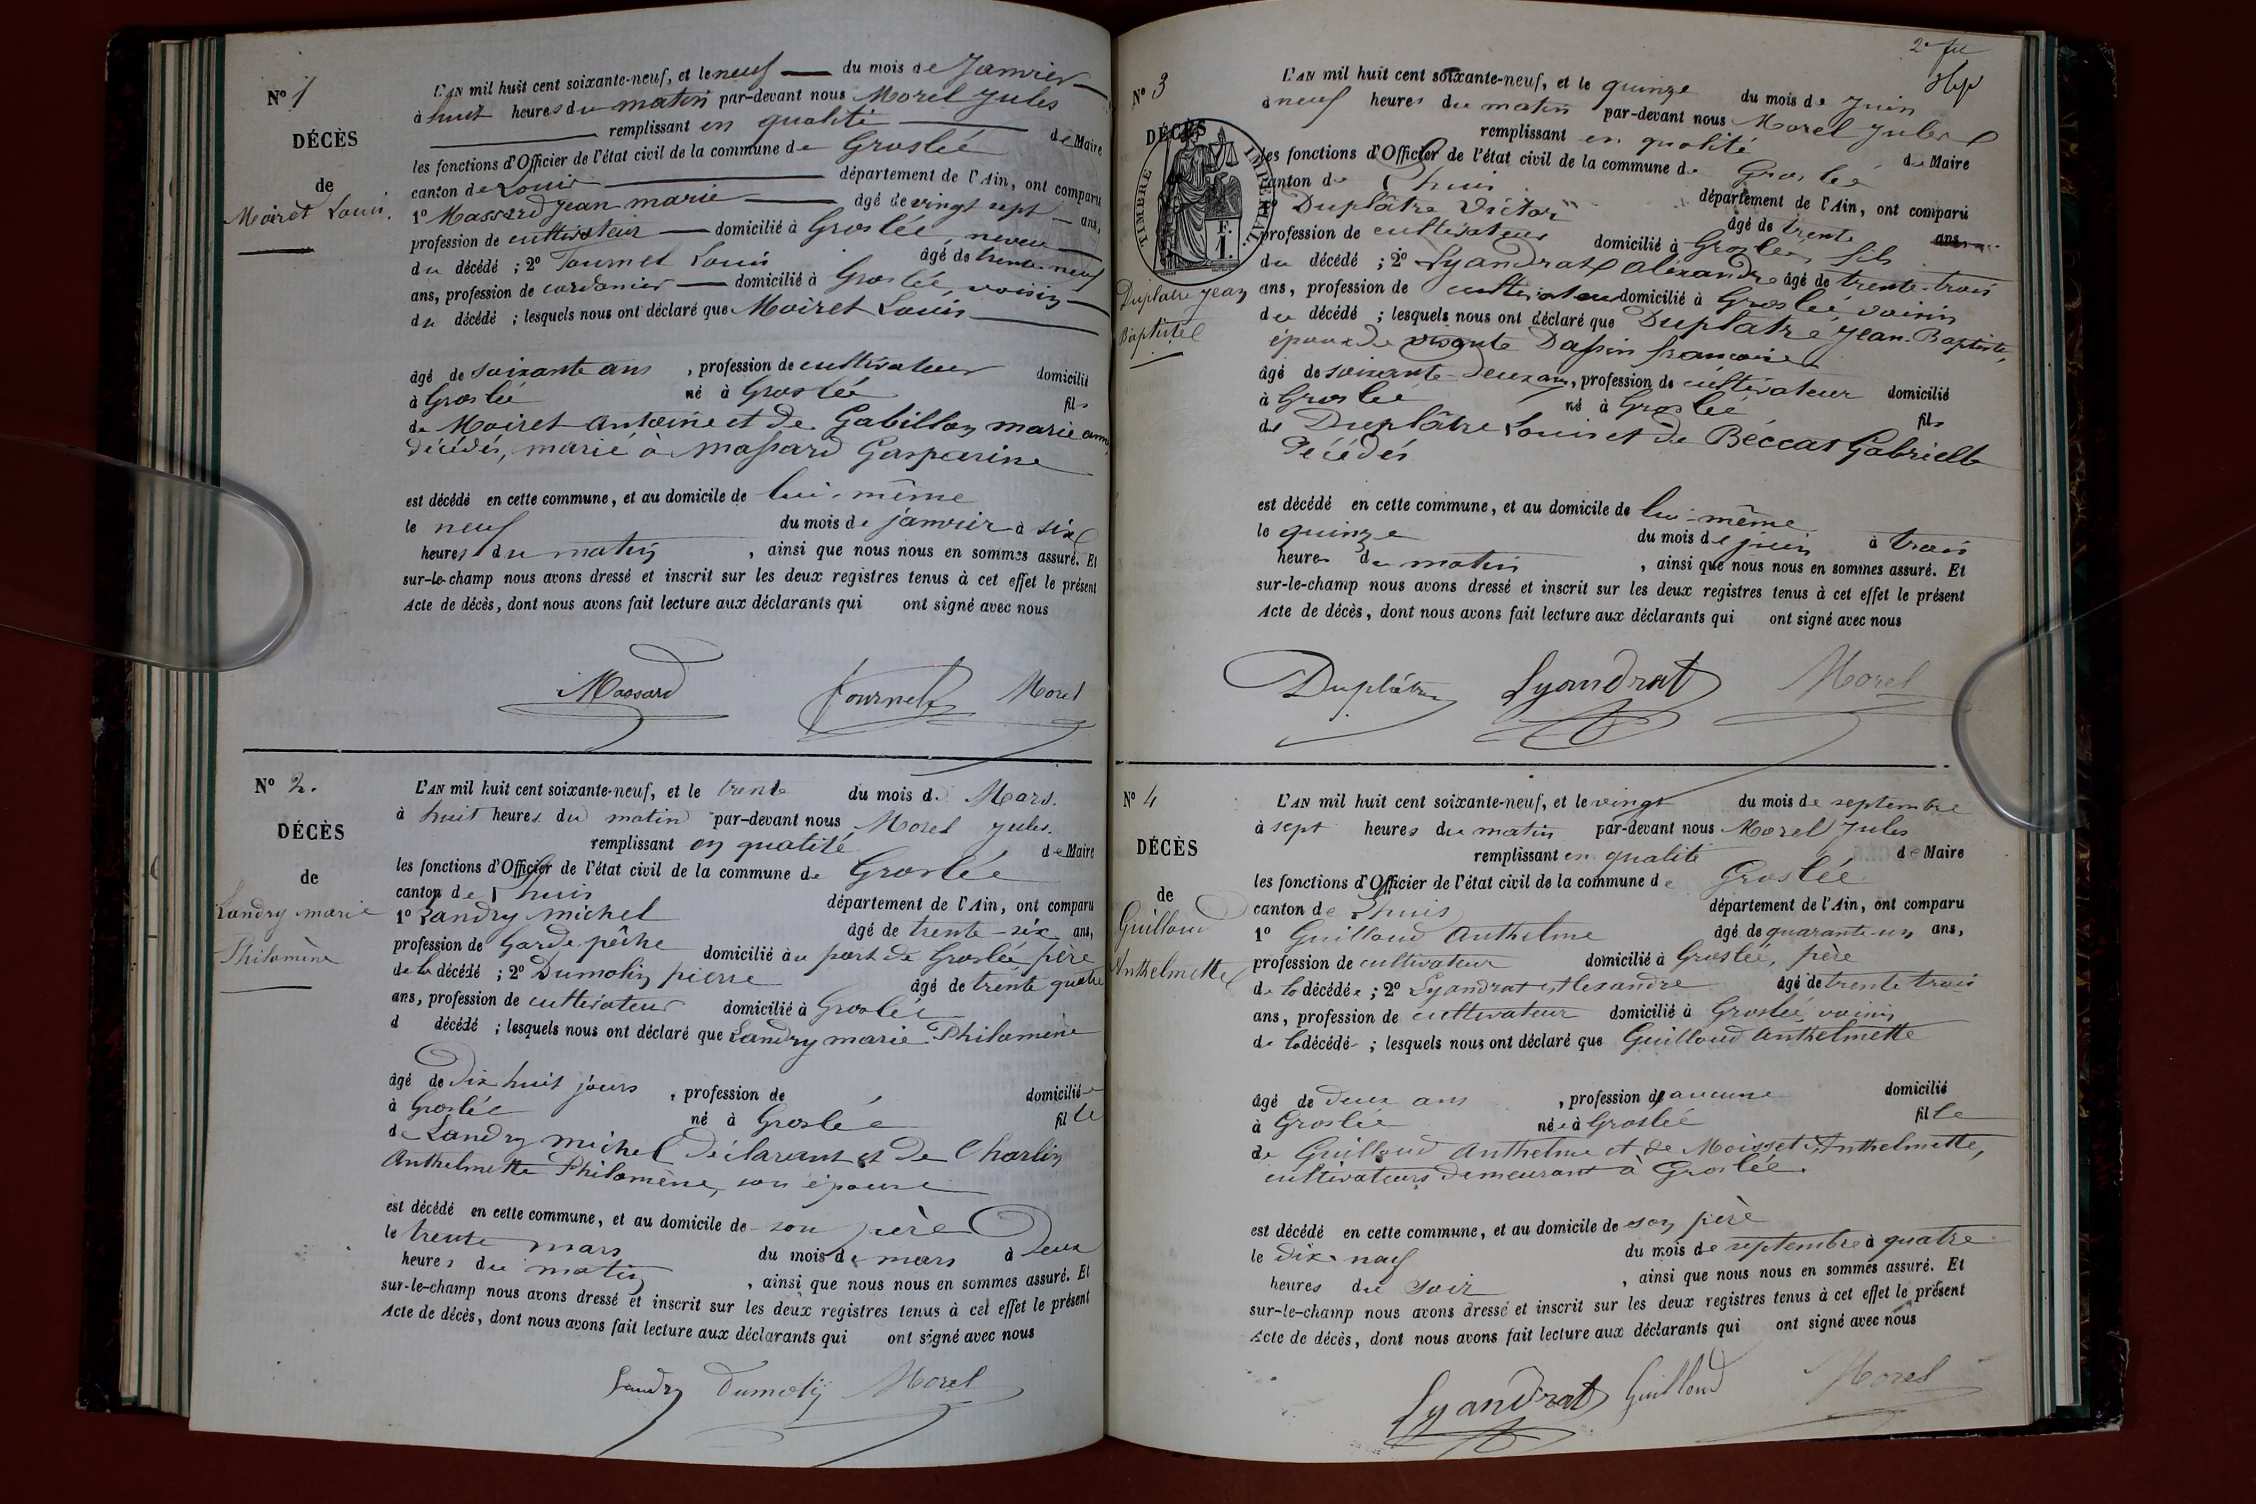 N° 1
DÉCÈS
de
Moiret Louis.
L'AN mil huit cent soixante-neuf, et le neuf du mois de Janvier
à huit heures du matin par-devant nous Morel Jules
remplissant en qualité de Maire
les fonctions d'Officier de l'état civil de la commune de Groslée
canton de département de l'Ain, ont comparu
1° Massard Jean marie âgé de vingt sept ans,
profession de cultivateur domicilié à Groslée, neveu
du décédé ; 2° Tournel Louis âgé de trente neuf
ans, profession de cordonier domicilié à Groslée, voisin
du décédé ; lesquels nous ont déclaré que Moiret Louis
âgé de soixante ans, profession de cultivateur domicilié
à Groslée né à Groslée fils
de Moiret Antoine et de Gabillon marie anne
décédés, marié à Massard Gasparine
est décédé en cette commune, et au domicile de lui-même
le neuf du mois de janvier à six
heures du matin, ainsi que nous nous en sommes assuré. Et
sur-le-champ nous avons dressé et inscrit sur les deux registres tenus à cet effet le présent
Acte de décès, dont nous avons fait lecture aux déclarants qui ont signé avec nous
Massard Tournel Morel
N° 2.
DÉCÈS
de
Landry marie
Philomène
L'AN mil huit cent soixante-neuf, et le trente du mois de Mars.
à huit heures du matin par-devant nous Morel Jules.
remplissant en qualité de Maire
les fonctions d'Officier de l'état civil de la commune de Groslée
canton de Lhuis département de l'Ain, ont comparu
1° Landry michel âgé de trente-six ans,
profession de Garde pêche domicilié au port de Groslée père
de la décédé ; 2° Dumolin pierre âgé de trente quatre
ans, profession de cultivateur domicilié à Groslée
d décédé ; lesquels nous ont déclaré que Landry marie Philomène
âgé de Dix huit jours, profession de domiciliée
à Groslée né à Groslée fille
de Landry michel Déclarant et de Charlin
Anthelmette Philomène, son épouse
est décédé en cette commune, et au domicile de son père
le trente mars du mois de mars à Deux
heures du matin, ainsi que nous nous en sommes assuré. Et
sur-le-champ nous avons dressé et inscrit sur les deux registres tenus à cet effet le présent
Acte de décès, dont nous avons fait lecture aux déclarants qui ont signé avec nous
Landry Dumolin Morel
2e
N° 3
DÉCÈS
TIMBRE IMPÉRIAL.
F.
1.
Duplatre Jean
Baptiste
L'AN mil huit cent soixante-neuf, et le quinze du mois de Juin
à neuf heures du matin par-devant nous Morel Jules
remplissant en qualité de Maire
les fonctions d'Officier de l'état civil de la commune de Groslée
canton de Lhuis département de l'Ain, ont comparu
1° Duplâtre Victor âgé de trente ans
profession de cultivateur domicilié à Groslée, fils
du décédé ; 2° Lyandrat Alexandre âgé de trente-trois
ans, profession de cultivateur domicilié à Groslée voisin
du décédé ; lesquels nous ont déclaré que Duplatre Jean-Baptiste,
époux de vivante Dassin françoise
âgé de soixante-deux ans, profession de cultivateur domicilié
à Groslée né à Groslée fils
de Duplâtre Louis et de Béccat Gabrielle
Décédés
est décédé en cette commune, et au domicile de lui-même
le quinze du mois de juin à trois
heures du matin, ainsi que nous nous en sommes assuré. Et
sur-le-champ nous avons dressé et inscrit sur les deux registres tenus à cet effet le présent
Acte de décès, dont nous avons fait lecture aux déclarants qui ont signé avec nous
Duplâtre Lyandrat Morel
N° 4
DÉCÈS
de
Guilloud
Anthelmette
L'AN mil huit cent soixante-neuf, et le vingt du mois de septembre
à sept heures du matin par-devant nous Morel Jules
remplissant en qualité de Maire
les fonctions d'Officier de l'état civil de la commune de Groslée
canton de Lhuis département de l'Ain, ont comparu
1° Guilloud Anthelme âgé de quarante-un ans,
profession de cultivateur domicilié à Groslée, père
de la décédée ; 2° Lyandrat Alexandre âgé de trente trois
ans, profession de cultivateur domicilié à Groslée, voisin
de la décédé ; lesquels nous ont déclaré que Guilloud Anthelmette
âgé de deux ans, profession de aucune domicilié
à Groslée née à Groslée fille
de Guilloud Anthelme et de Moisset Anthelmette,
cultivateurs demeurant à Groslée.
est décédé en cette commune, et au domicile de son père
le dix-neuf du mois de septembre à quatre
heures du soir, ainsi que nous nous en sommes assuré. Et
sur-le-champ nous avons dressé et inscrit sur les deux registres tenus à cet effet le présent
Acte de décès, dont nous avons fait lecture aux déclarants qui ont signé avec nous
Lyandrat Guilloud Morel